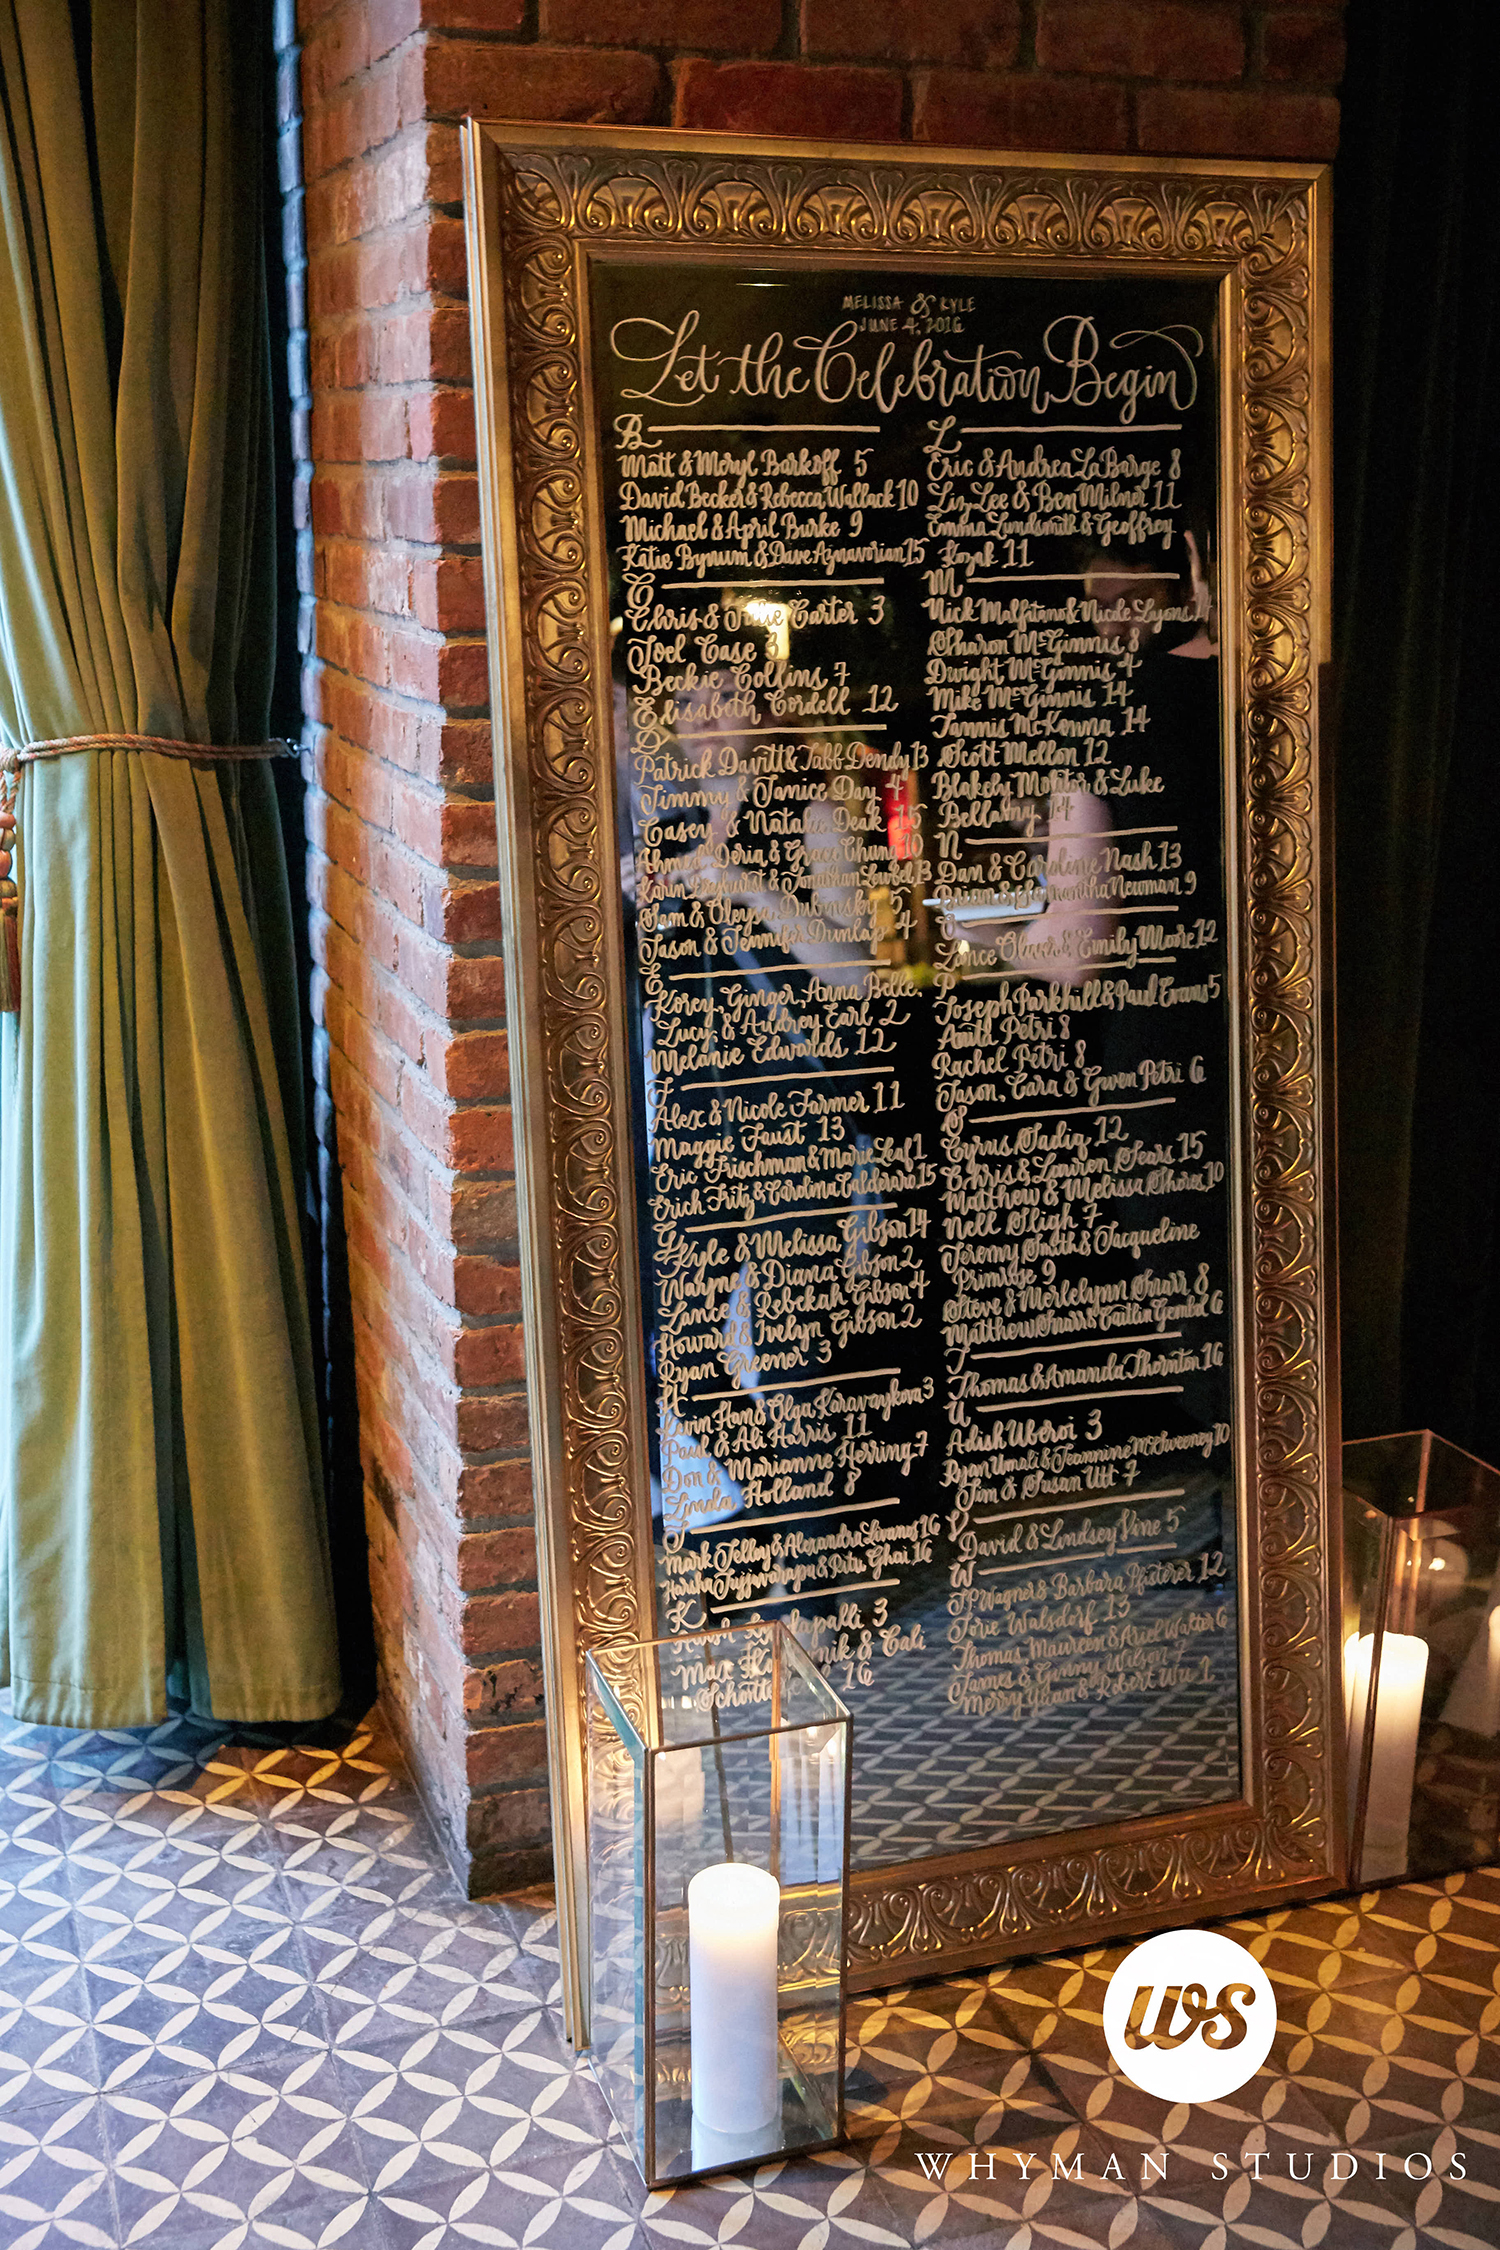 MELISSA & KYLE
JUNE 4, 2016
Let the Celebration Begin
B
Matt & Meryl Barkoff 5
David Becker & Rebecca Wallack 10
Michael & April Burke 9
Katie Bynum & Dave Aznavorian 15
C
Chris & Julie Carter 3
Joel Case 3
Beckie Collins 7
Elisabeth Cordell 12
D
Patrick Davitt & Tabb Dendy 13
Jimmy & Janice Day 4
Casey & Natalie Deak 15
Ahmed Deria & Grace Chung 10
Karin & Jonathan 13
Sam & Oleysa Dubinsky 5
Jason & Jennifer Dunlap 4
E
Korey, Ginger, Anna Belle,
Lucy, & Audrey Earl 2
Melanie Edwards 12
F
Alex & Nicole Farmer 11
Maggie Faust 13
Eric Frischman & Marie Leaf 1
Erich Fritz & Carolina Calderaro 15
G
Kyle & Melissa Gibson 14
Wayne & Diana Gibson 2
Lance & Rebekah Gibson 4
Howard & Ivelyn Gibson 2
Ryan Greener 3
H
Kevin Han & Olga Karavaykova 3
Paul & Ali Harris 11
Don & Marianne Herring 7
Linda Holland 8
J
Mark Jelley & Alexandra Livanos 16
Harsha Jujjavarapu & Ritu Ghai 16
K
3
Max & Cali
16
L
Eric & Andrea LaBarge 8
Liz Lee & Ben Milner 11
Emma Lundsmith & Geoffrey
Kozak 11
M
Nick Malfitano & Nicole Lyons
Sharon McGinnis 8
Dwight McGinnis 4
Mike McGinnis 14
Tannis McKenna 14
Scott Mellon 12
Blakely Molitor & Luke
Bellamy 14
N
Dan & Caroline Nash 13
Brian & Samantha Newman 9
O
Lance Oliver & Emily Moore 12
P
Joseph Parkhill & Paul Evans 5
Anita Petri 8
Rachel Petri 8
Jason, Cara & Gwen Petri 6
S
Cyrus Sadiq 12
Chris & Lauren Sears 15
Matthew & Melissa Shores 10
Nell Sligh 7
Jeremy Smith & Jacqueline
Primrose 9
Steve & Merlelynn Snarr 8
Matthew Snarr & Caitlin Gembal 6
T
Thomas & Amanda Thornton 16
U
Adish Uberoi 3
Ryan Umali & Jeannine McSweeney 10
Jim & Susan Utt 7
V
David & Lindsey Vine 5
W
JP Wagner & Barbara Pfisterer 12
Torie Walsdorf 13
Thomas, Maureen & Ariel Walter 6
James & Ginny Wilson 7
Merry Yuan & Robert Wu 1
ws
WHYMAN STUDIOS